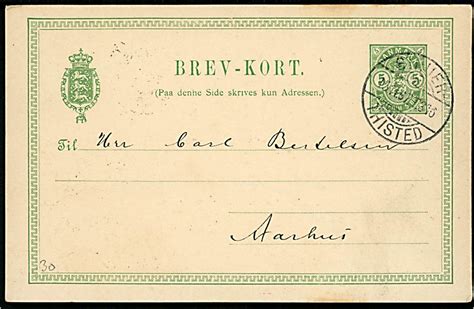 BREV-KORT.
(Paa denne Side skrives kun Adressen.)
DANMARK
5 5
THISTED
Til Herr Carl Bertelsen
Aarhus
30